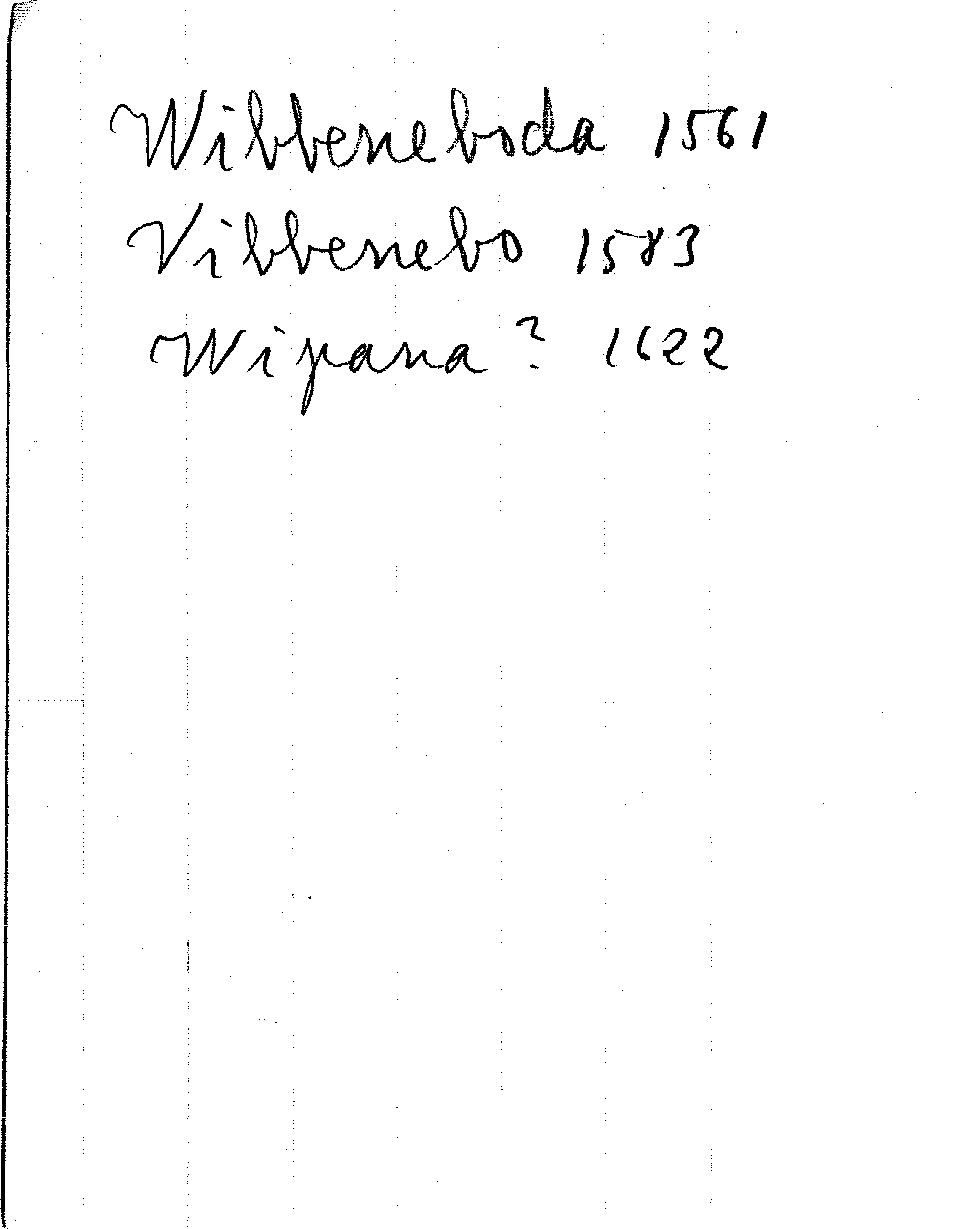 Wibbeneboda 1561
Vibbenebo 1583
Wipana? 1622